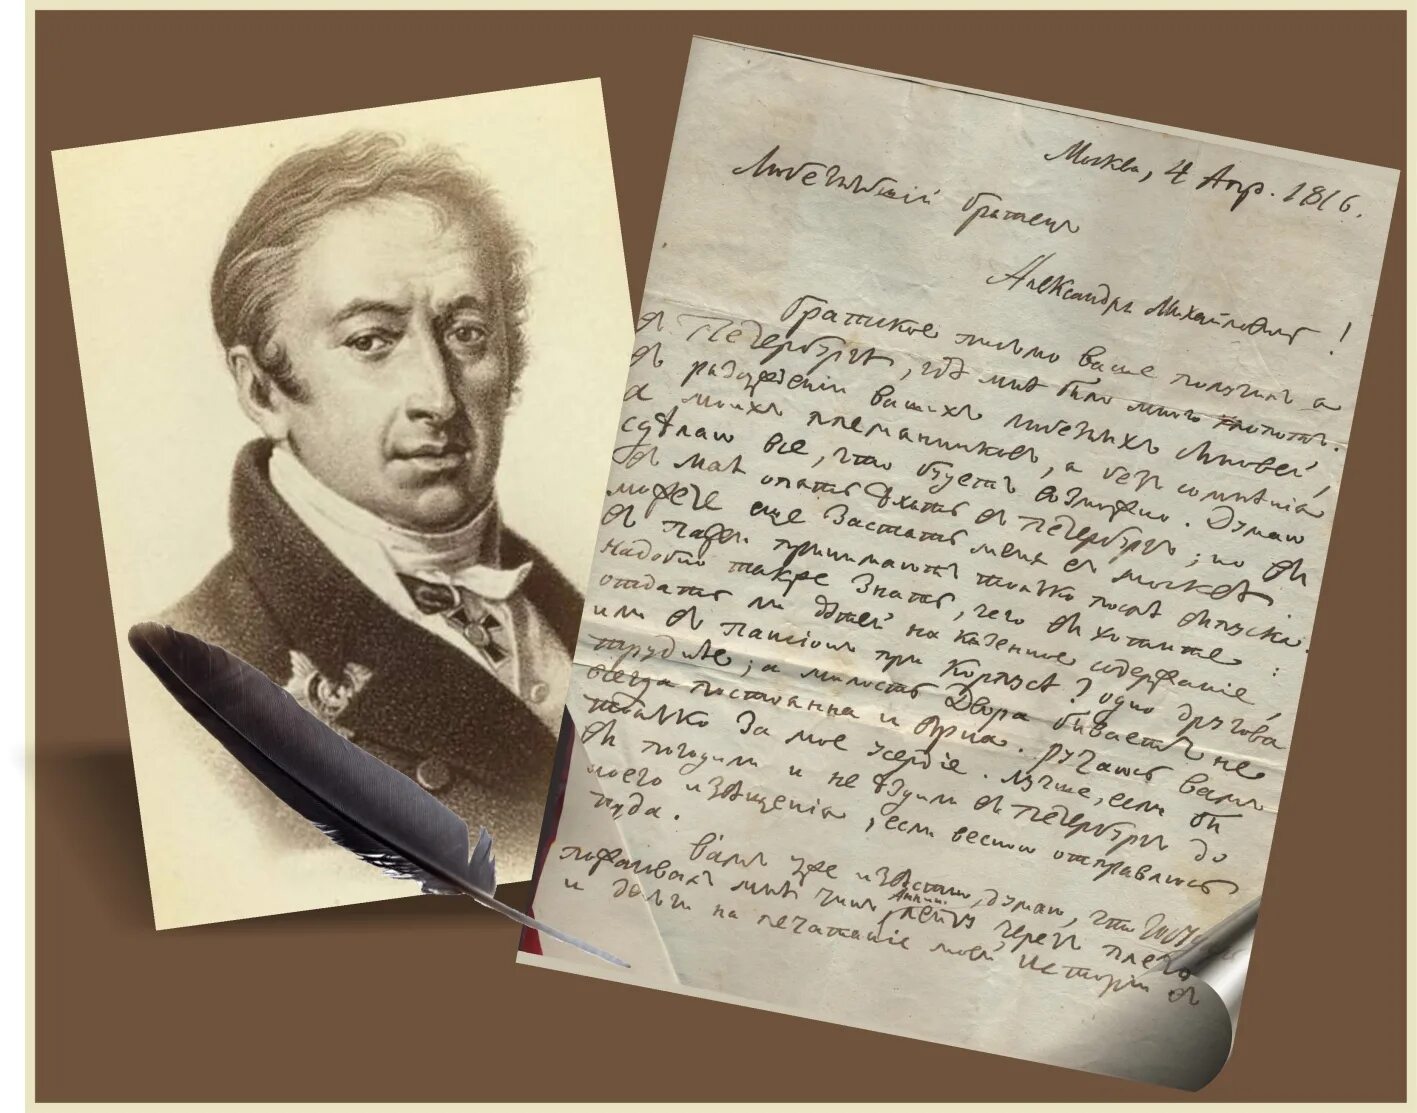 Москва, 4 Апр. 1816.
Любезнѣйшій братецъ
Александръ Михайловичь!
братское письмо ваше получилъ я
въ Петербургѣ, гдѣ мнѣ было много хлопотъ.
въ разсужденіи вашихъ любезныхъ сыновей,
а моихъ племянниковъ, я безъ сомнѣнія
сдѣлаю все, что будетъ возможно. Думаю
въ Маѣ опять ѣхать въ Петербургъ; но вы
можете еще застать меня въ Москвѣ.
въ пажи принимаютъ только послѣ выпуска.
надобно также знать, чего вы хотите:
отдать ли дѣтей на казенное содержаніе,
или въ пансіонъ при Корпусѣ? одно другова
труднѣе; а милость Двора бываетъ не
всегда постоянна и вѣрна. ручаюсь вамъ
только за мое усердіе. лучше, если бы
вы погодили и не ѣздили въ Петербургъ до
моего извѣщенія, если весною отправлюсь
туда.
вамъ уже извѣстно, думаю, что Государь
пожаловалъ мнѣ чинъ, Аннин. ленту черезъ плечо
и деньги на печатаніе моей Исторіи въ